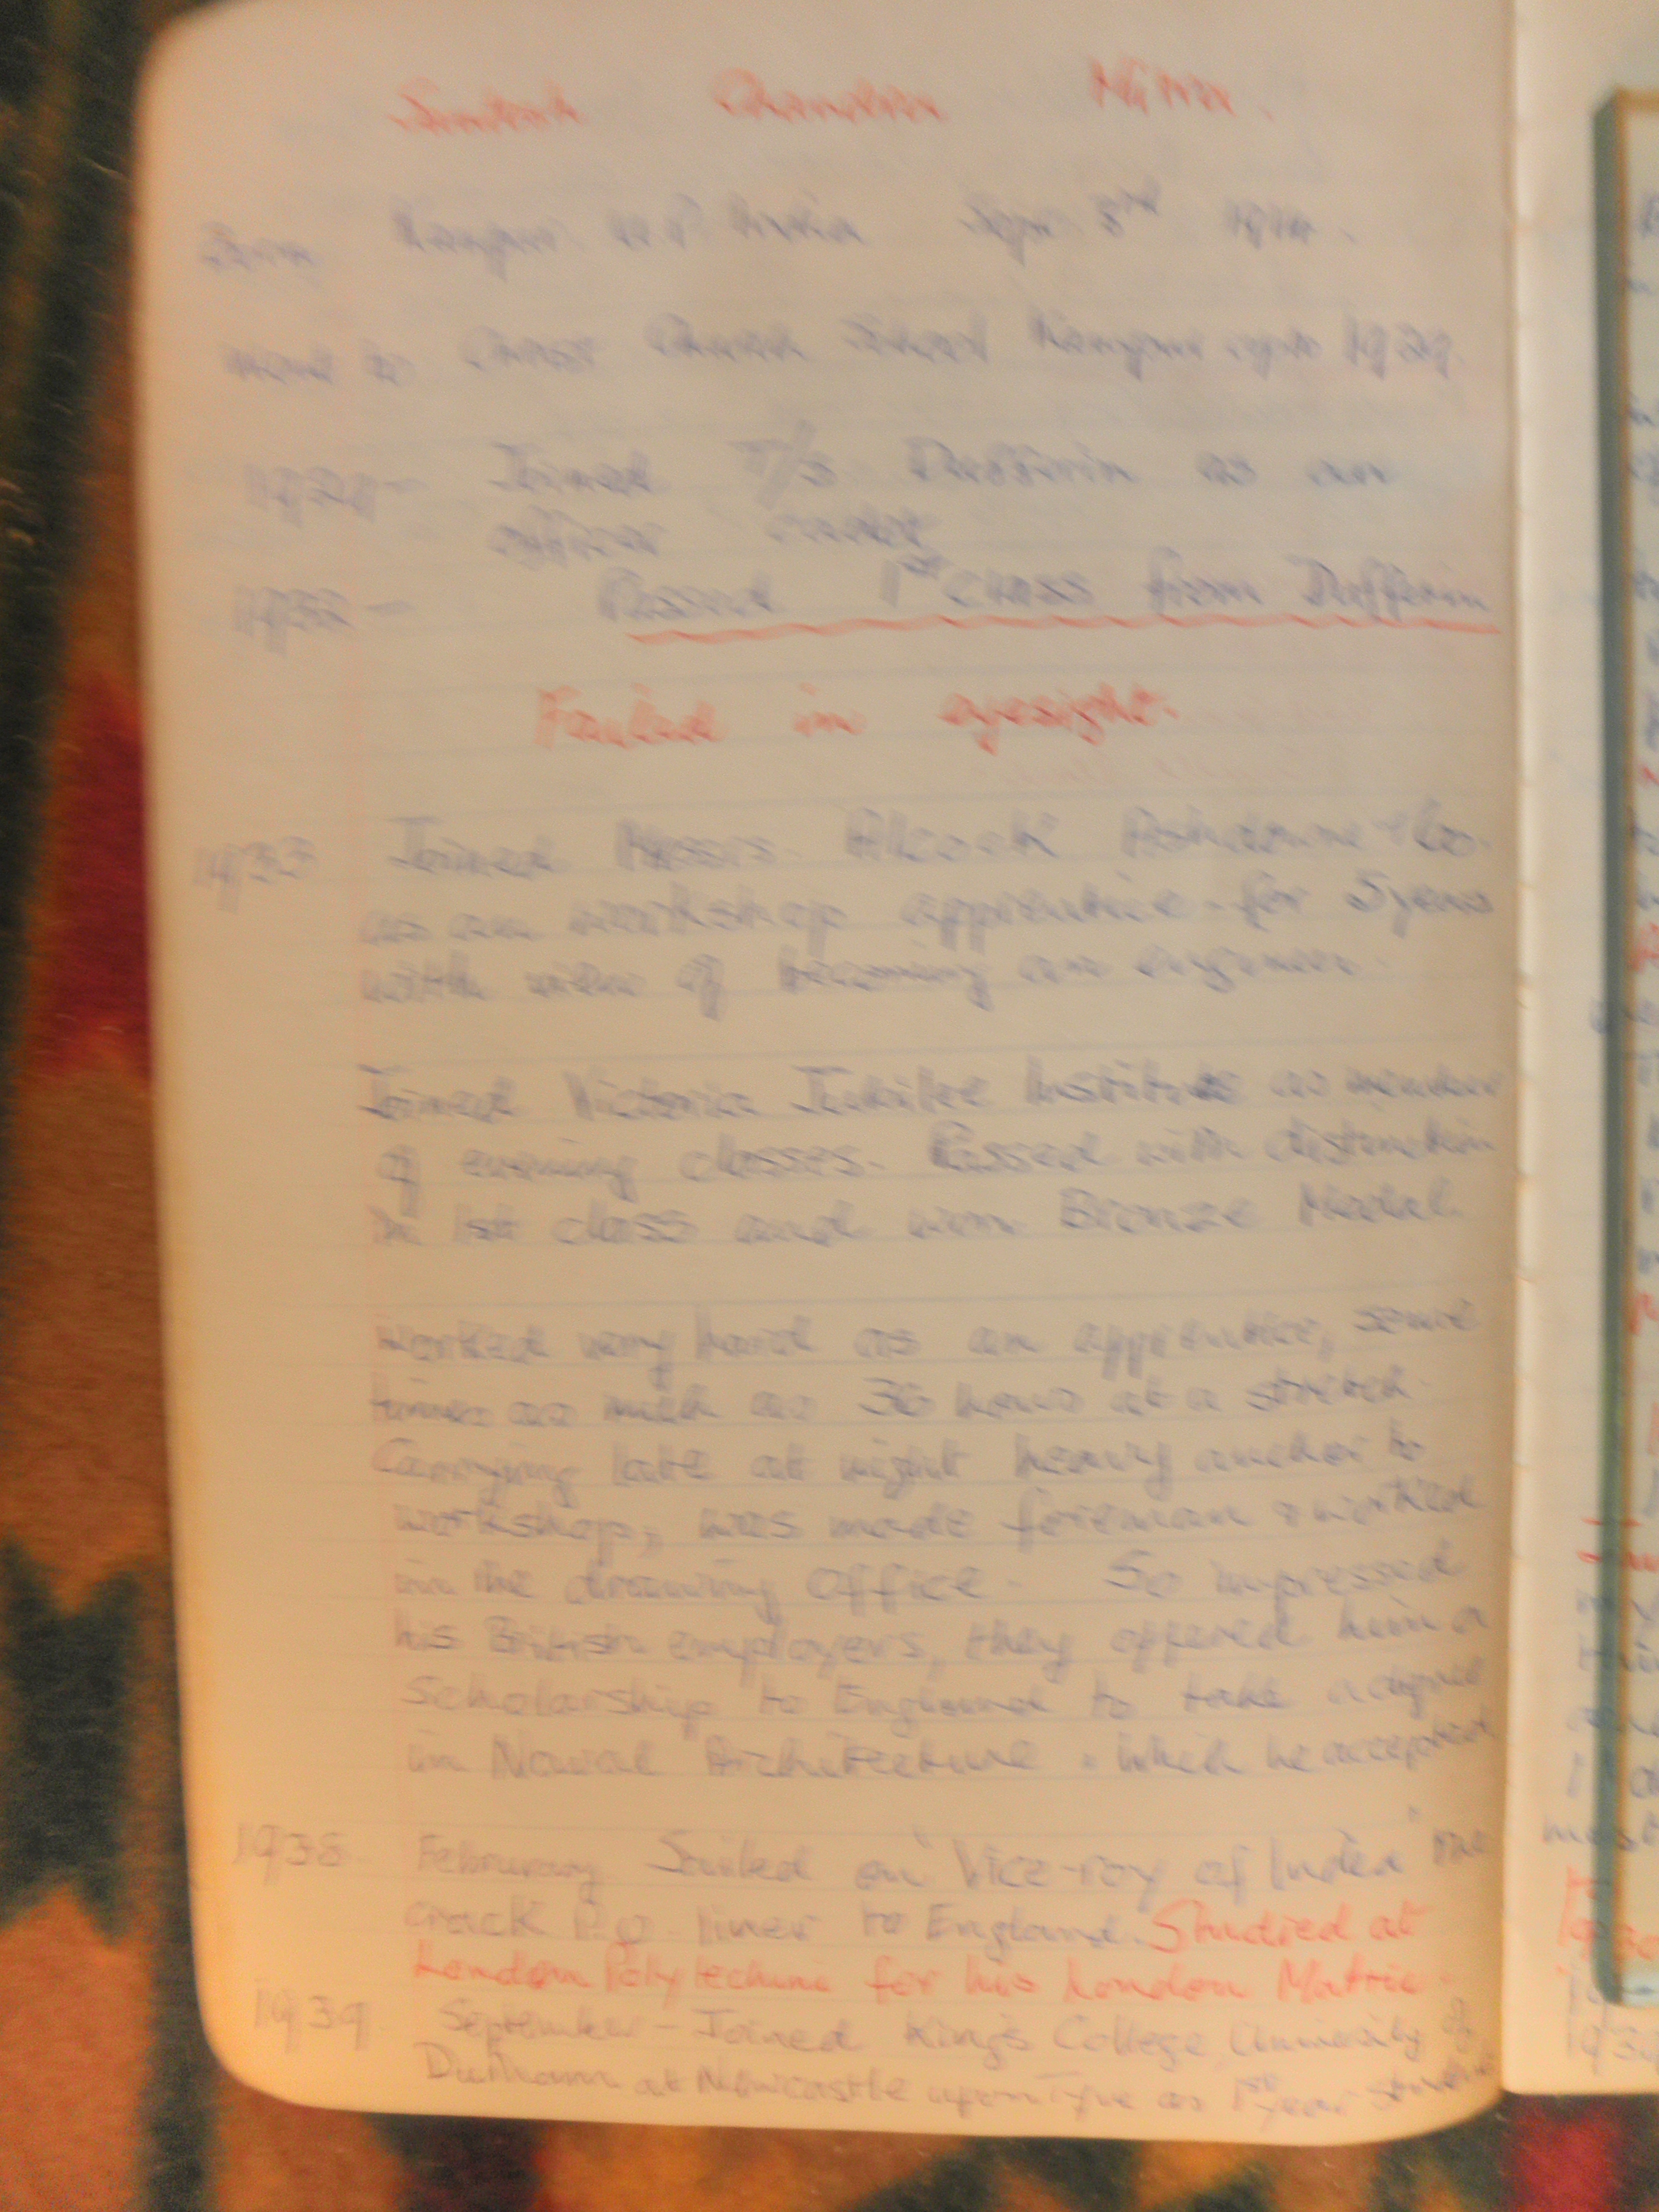 Chandra Mitra.
Born Kanpur U.P. India Sept. 3rd
went to Christ Church School Kanpur upto 1929.
1929- Joined T/S Dufferin as an
officer cadet
1932- Passed 1st class from Dufferin
Failed in eyesight.
1933 Joined Messrs. Alcock Ashdown & Co.
as an workshop apprentice for 5 years
with view of becoming an engineer.
Joined Victoria Jubilee Institute as member
of evening classes. Passed with distinction
in 1st class and won Bronze Medal.
Worked very hard as an apprentice, some
times as much as 36 hours at a stretch.
Carrying late at night heavy anchor to
workshop, was made foreman & worked
in the drawing office. So impressed
his British employers, they offered him a
Scholarship to England to take a degree
in Naval Architecture. Which he accepted
1938 February Sailed on "Vice-roy of India" the
crack P.O. liner to England. Studied at
London Polytechnic for his London Matric.
1939. September - Joined King's College, University of
Durham at Newcastle upon Tyne as 1st year student